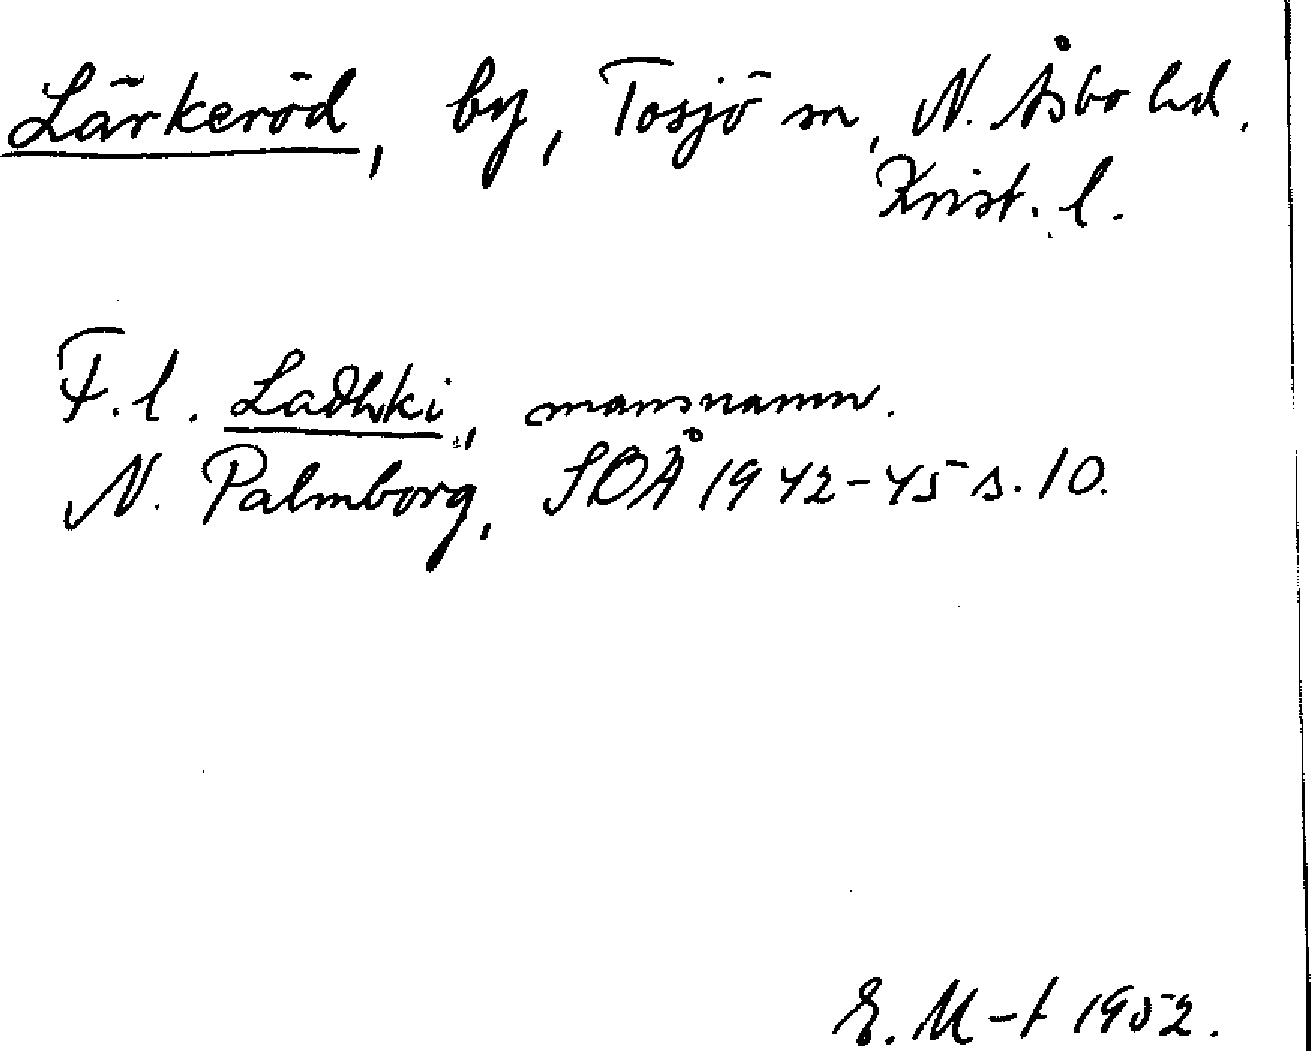 Lärkeröd, by, Tosjö sn, N. Åsbo hd,
Krist. l.
F. l. Ladhki, mansnamn.
N. Palmborg, SOÅ 1942-45 s. 10.
E. M-t 1952.